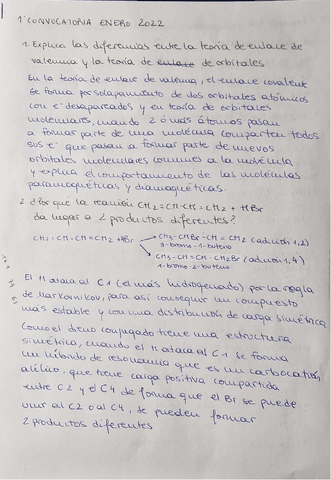 1ª CONVOCATORIA ENERO 2022
1. Explica las diferencias entre la teoría de enlace de
valencia y la teoría de enlace de orbitales
En la teoría de enlace de valencia, el enlace covalente
se forma por solapamiento de dos orbitales atómicos
con e⁻ desapareados y en teoría de orbitales
moleculares, cuando 2 ó más átomos pasan
a formar parte de una molécula comparten todos
sus e⁻ que pasan a formar parte de nuevos
orbitales moleculares comunes a la molécula
y explica el comportamiento de las moléculas
paramagnéticas y diamagnéticas.
2. ¿Por qué la reacción CH2=CH-CH=CH2 + HBr
da lugar a 2 productos diferentes?
CH2=CH-CH=CH2 + HBr → CH3-CHBr-CH=CH2 (adición 1,2)
3-bromo-1-buteno
→ CH3-CH=CH-CH2Br (adición 1,4)
1-bromo-2-buteno
El H ataca al C1 (el más hidrogenado) por la regla
de Markovnikov, para así conseguir un compuesto
más estable y con una distribución de carga simétrica
Como el dieno conjugado tiene una estructura
simétrica, cuando el H ataca al C1 se forma
un híbrido de resonancia que es un carbocatión
alílico, que tiene carga positiva compartida
entre C2 y el C4 de forma que el Br se puede
unir al C2 o al C4, se pueden formar
2 productos diferentes